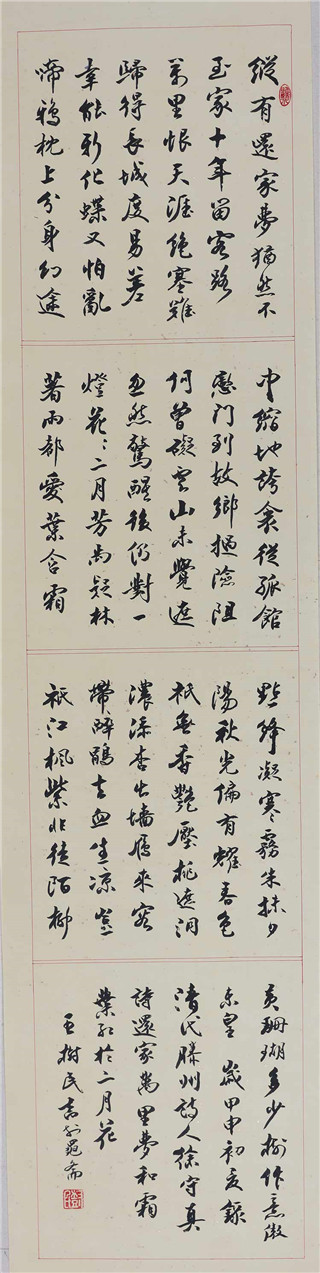 縱有還家夢猶然不
至家十年留客路
萬里恨天涯絕塞難
歸得長城度易差
幸能新化蝶又怕亂
啼鴉枕上分身幻途
中縮地誇衾從孤館
慰門到故鄉撾險阻
何曾礙雲山未覺遮
忽然驚醒後仍對一
燈花 二月芳尚疑林
著雨都愛葉含霜
點絳凝寒霧朱抹夕
陽秋光偏有耀春色
祇無香艷壓桃遮洞
濃添杏出墻雁來容
帶醉鵑去血生涼豈
祇江楓紫非徒陌柳
黃珊瑚多少樹作意傲
東皇 歲甲申初夏錄
清代滕州詩人徐守真
詩還家萬里夢和霜
葉紅於二月花
王樹民書於苑齋